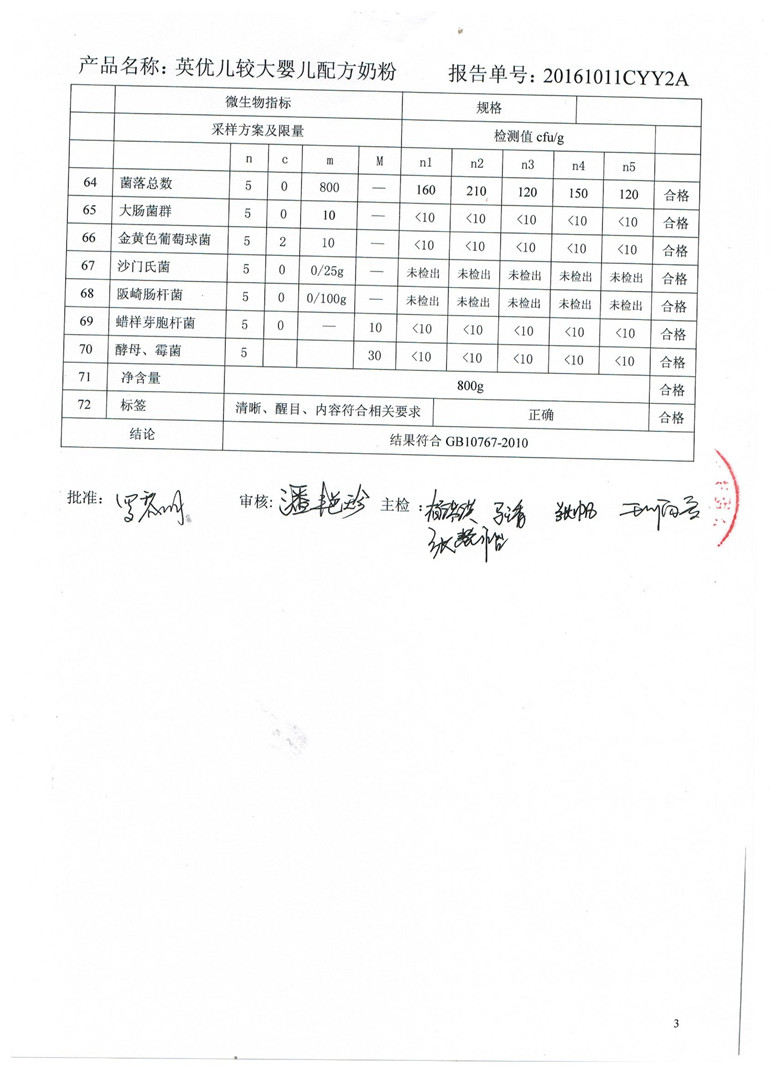 产品名称：英优儿较大婴儿配方奶粉 报告单号：20161011CYY2A
微生物指标 规格
采样方案及限量 检测值 cfu/g
n c m M n1 n2 n3 n4 n5
64 菌落总数 5 0 800 — 160 210 120 150 120 合格
65 大肠菌群 5 0 10 — <10 <10 <10 <10 <10 合格
66 金黄色葡萄球菌 5 2 10 — <10 <10 <10 <10 <10 合格
67 沙门氏菌 5 0 0/25g — 未检出 未检出 未检出 未检出 未检出 合格
68 阪崎肠杆菌 5 0 0/100g — 未检出 未检出 未检出 未检出 未检出 合格
69 蜡样芽胞杆菌 5 0 — 10 <10 <10 <10 <10 <10 合格
70 酵母、霉菌 5 30 <10 <10 <10 <10 <10 合格
71 净含量 800g 合格
72 标签 清晰、醒目、内容符合相关要求 正确 合格
结论 结果符合 GB10767-2010
批准： 审核：潘艳珍 主检：
3